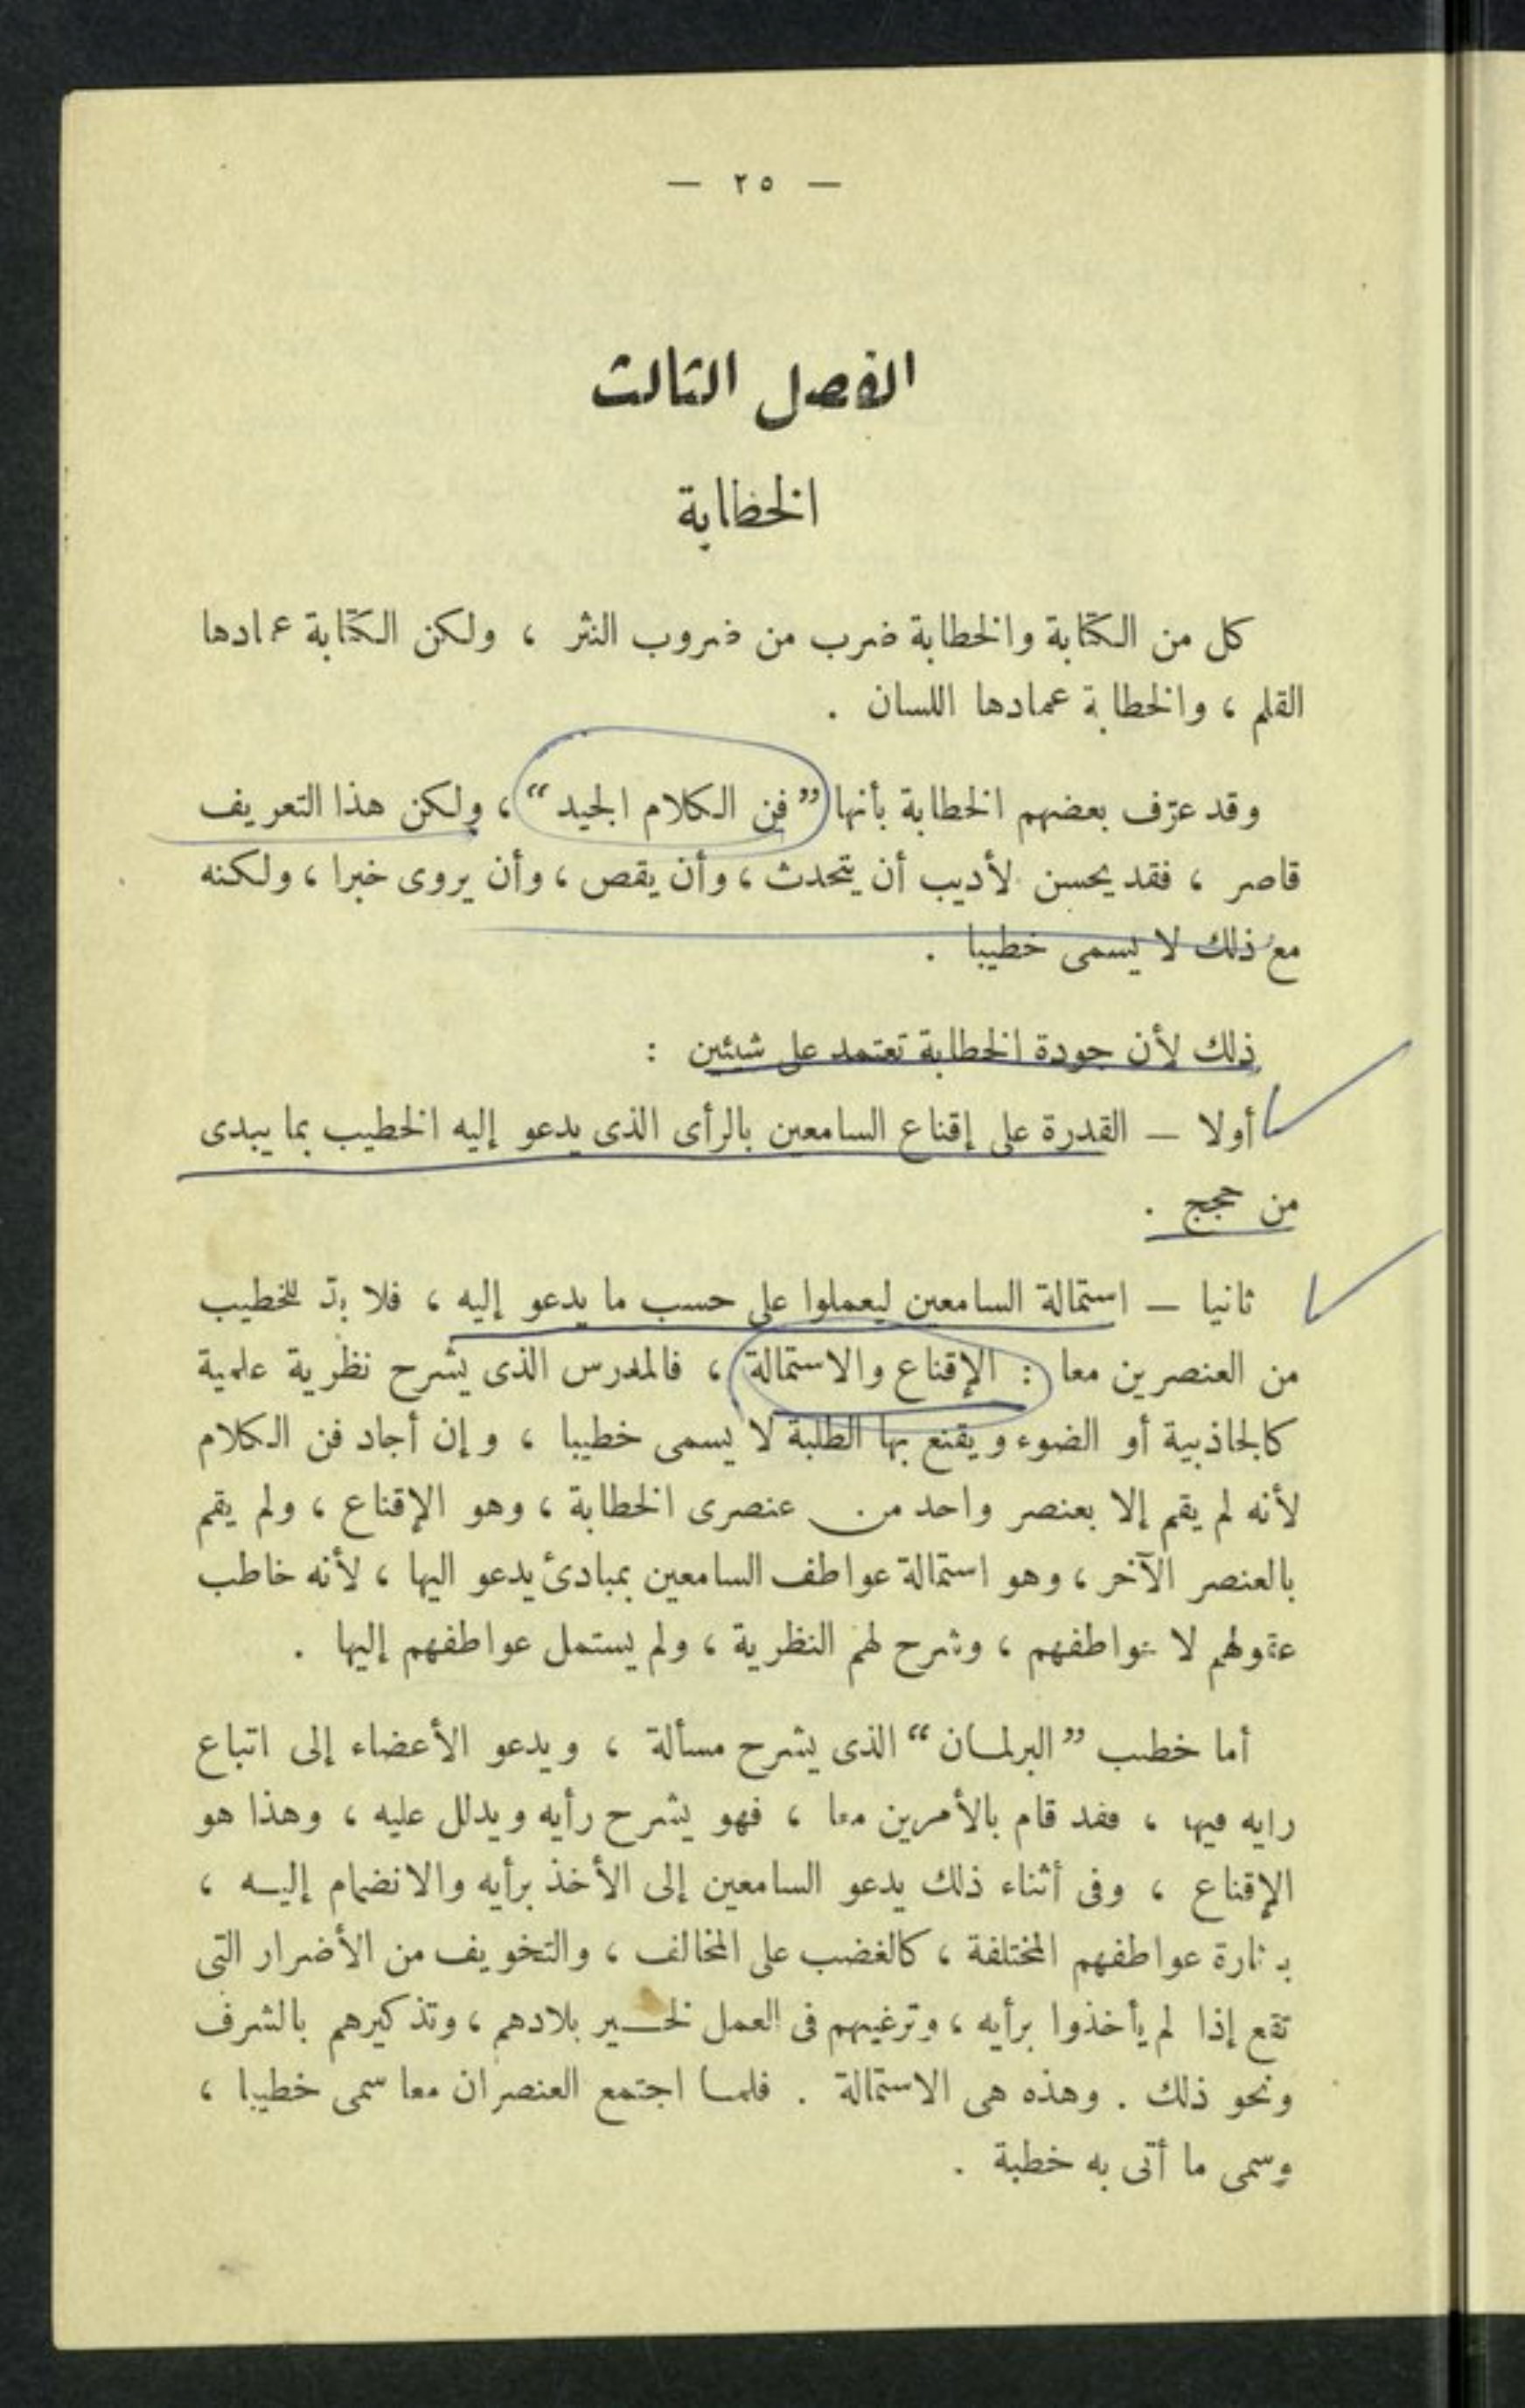 — ٢٥ —
الفصل الثالث
الخطابة
كل من الكتابة والخطابة ضرب من ضروب النثر ، ولكن الكتابة عمادها
القلم ، والخطابة عمادها اللسان .
وقد عرّف بعضهم الخطابة بأنها ” فن الكلام الجيد “ ، ولكن هذا التعريف
قاصر ، فقد يحسن لأديب أن يتحدث ، وأن يقص ، وأن يروى خبرا ، ولكنه
مع ذلك لا يسمى خطيبا .
ذلك لأن جودة الخطابة تعتمد على شيئين :
أولا — القدرة على إقناع السامعين بالرأى الذى يدعو إليه الخطيب بما يبدى
من حجج .
ثانيا — استمالة السامعين ليعملوا على حسب ما يدعو إليه ، فلا بدّ للخطيب
من العنصرين معا : الإقناع والاستمالة ، فالمدرس الذى يشرح نظرية علمية
كالجاذبية أو الضوء ويقنع بها الطلبة لا يسمى خطيبا ، وإن أجاد فن الكلام
لأنه لم يقم إلا بعنصر واحد من عنصرى الخطابة ، وهو الإقناع ، ولم يقم
بالعنصر الآخر ، وهو استمالة عواطف السامعين بمبادئ يدعو اليها ، لأنه خاطب
عقولهم لا عواطفهم ، وشرح لهم النظرية ، ولم يستمل عواطفهم إليها .
أما خطيب ” البرلمان “ الذى يشرح مسألة ، ويدعو الأعضاء إلى اتباع
رايه فيها ، فقد قام بالأمرين معا ، فهو يشرح رأيه ويدلل عليه ، وهذا هو
الإقناع ، وفى أثناء ذلك يدعو السامعين إلى الأخذ برأيه والانضمام إليــه ،
بإثارة عواطفهم المختلفة ، كالغضب على المخالف ، والتخويف من الأضرار التى
تقع إذا لم يأخذوا برأيه ، وترغيبهم فى العمل لخــير بلادهم ، وتذكيرهم بالشرف
ونحو ذلك . وهذه هى الاستمالة . فلمــا اجتمع العنصران معا سمى خطيبا ،
وسمى ما أتى به خطبة .